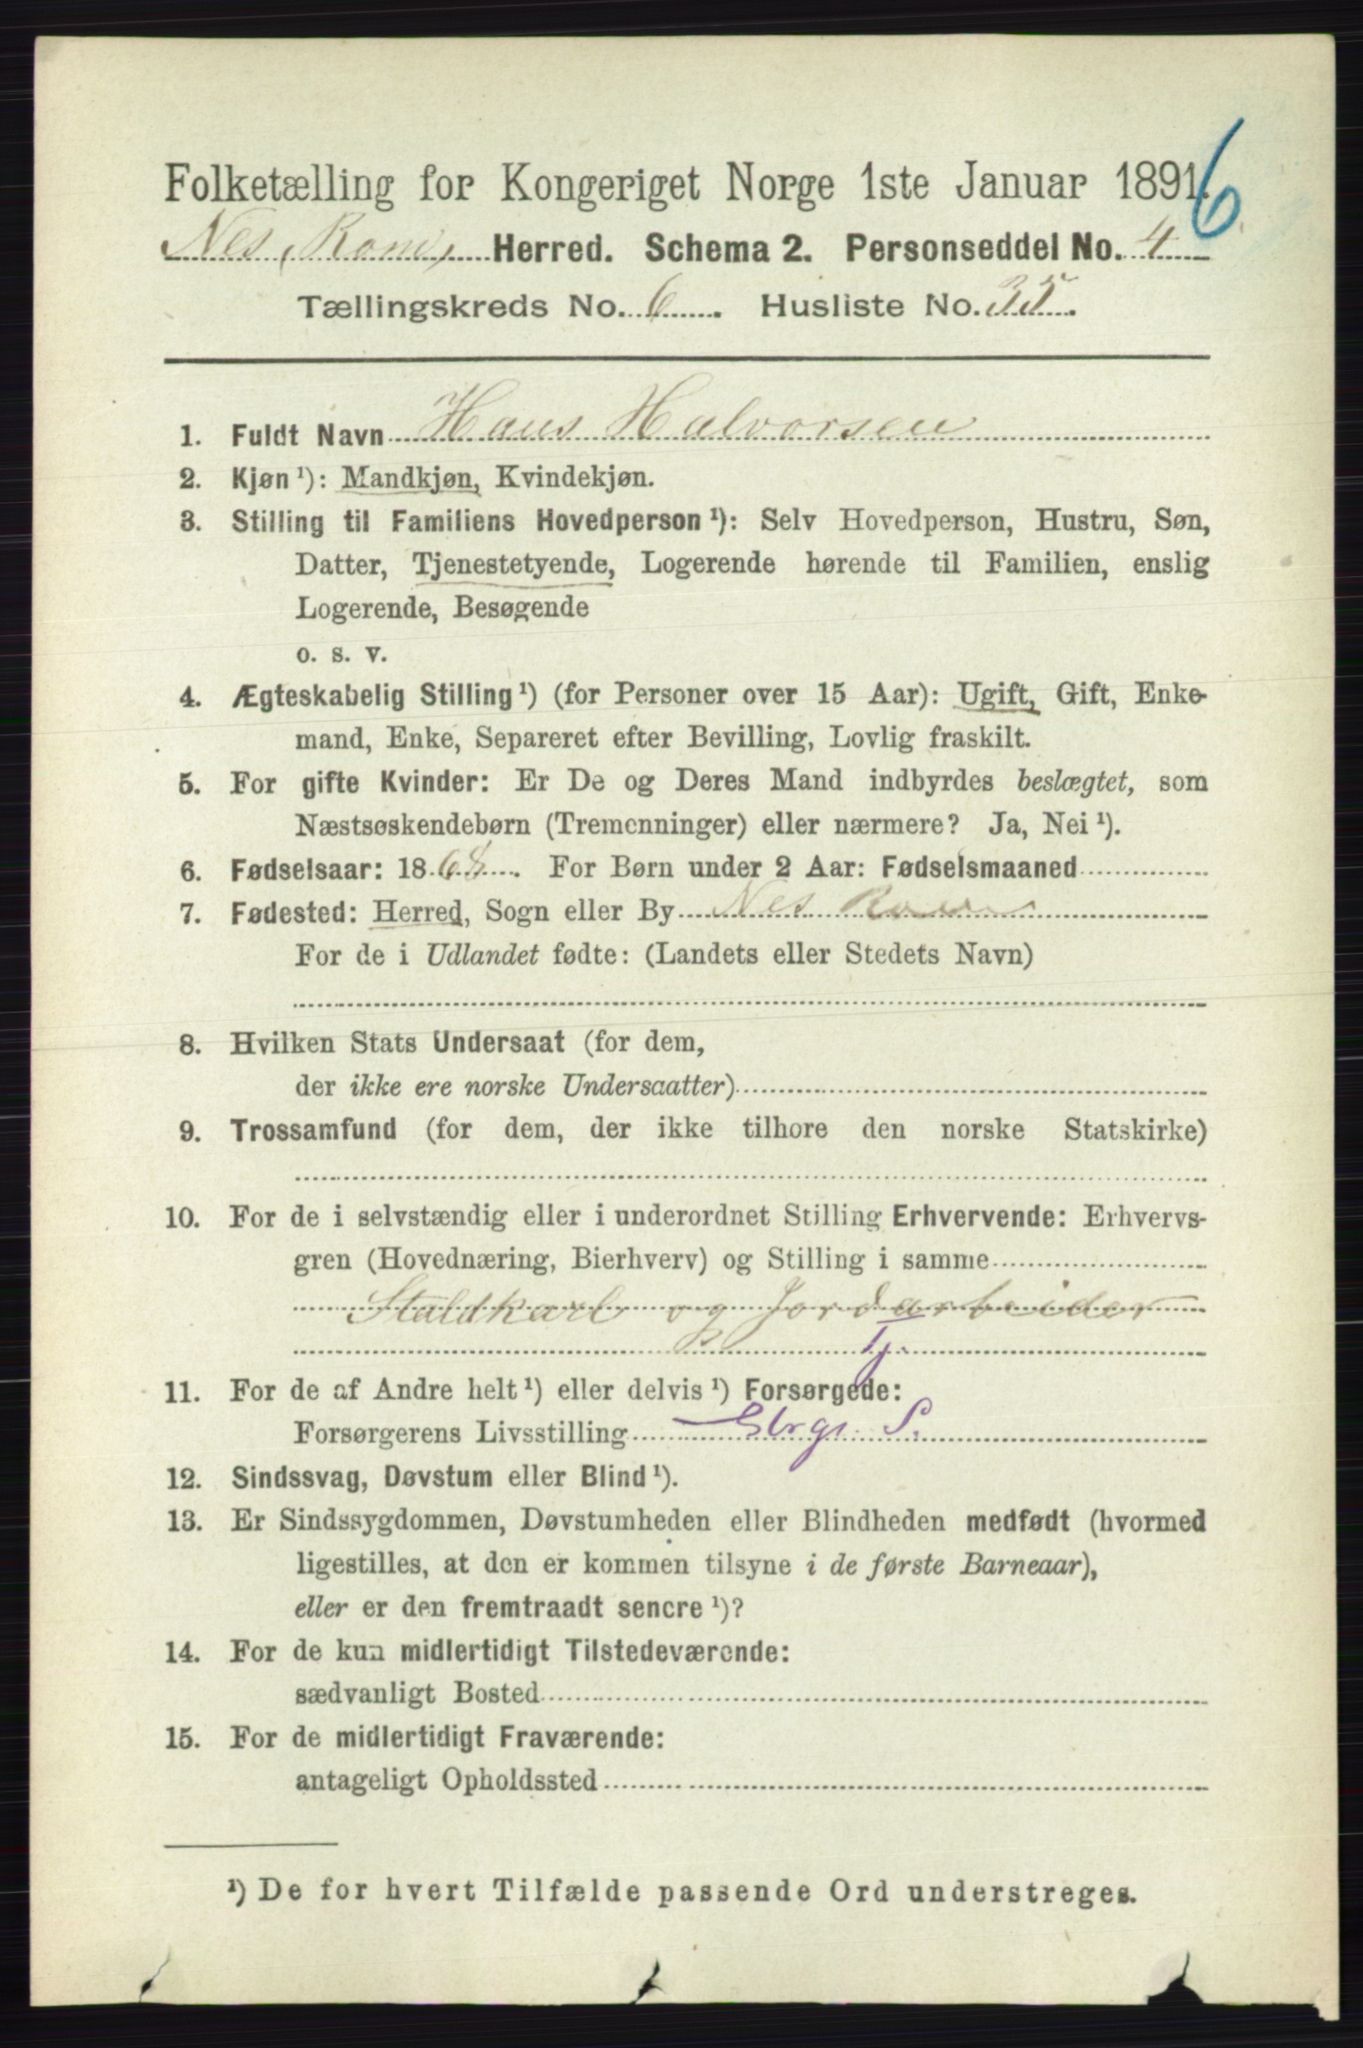 6
Folketælling for Kongeriget Norge 1ste Januar 1891.
Nes, Rom, Herred. Schema 2. Personseddel No. 4
Tællingskreds No. 6. Husliste No. 35.
1. Fuldt Navn Hans Halvorsen
2. Kjøn¹): Mandkjøn, Kvindekjøn.
3. Stilling til Familiens Hovedperson¹): Selv Hovedperson, Hustru, Søn,
Datter, Tjenestetyende, Logerende hørende til Familien, enslig
Logerende, Besøgende
o. s. v.
4. Ægteskabelig Stilling¹) (for Personer over 15 Aar): Ugift, Gift, Enke-
mand, Enke, Separeret efter Bevilling, Lovlig fraskilt.
5. For gifte Kvinder: Er De og Deres Mand indbyrdes beslægtet, som
Næstsøskendebørn (Tremenninger) eller nærmere? Ja, Nei¹).
6. Fødselsaar: 1868. For Børn under 2 Aar: Fødselsmaaned
7. Fødested: Herred, Sogn eller By Nes Rom
For de i Udlandet fødte: (Landets eller Stedets Navn)
8. Hvilken Stats Undersaat (for dem,
der ikke ere norske Undersaatter)
9. Trossamfund (for dem, der ikke tilhøre den norske Statskirke)
10. For de i selvstændig eller i underordnet Stilling Erhvervende: Erhvervs-
gren (Hovednæring, Bierhverv) og Stilling i samme
Staldkarl og Jordarbeider
Tj.
11. For de af Andre helt¹) eller delvis¹) Forsørgede:
Forsørgerens Livsstilling S.
12. Sindssvag, Døvstum eller Blind¹).
13. Er Sindssygdommen, Døvstumheden eller Blindheden medfødt (hvormed
ligestilles, at den er kommen tilsyne i de første Barneaar),
eller er den fremtraadt senere¹)?
14. For de kun midlertidigt Tilstedeværende:
sædvanligt Bosted
15. For de midlertidigt Fraværende:
antageligt Opholdssted
¹) De for hvert Tilfælde passende Ord understreges.